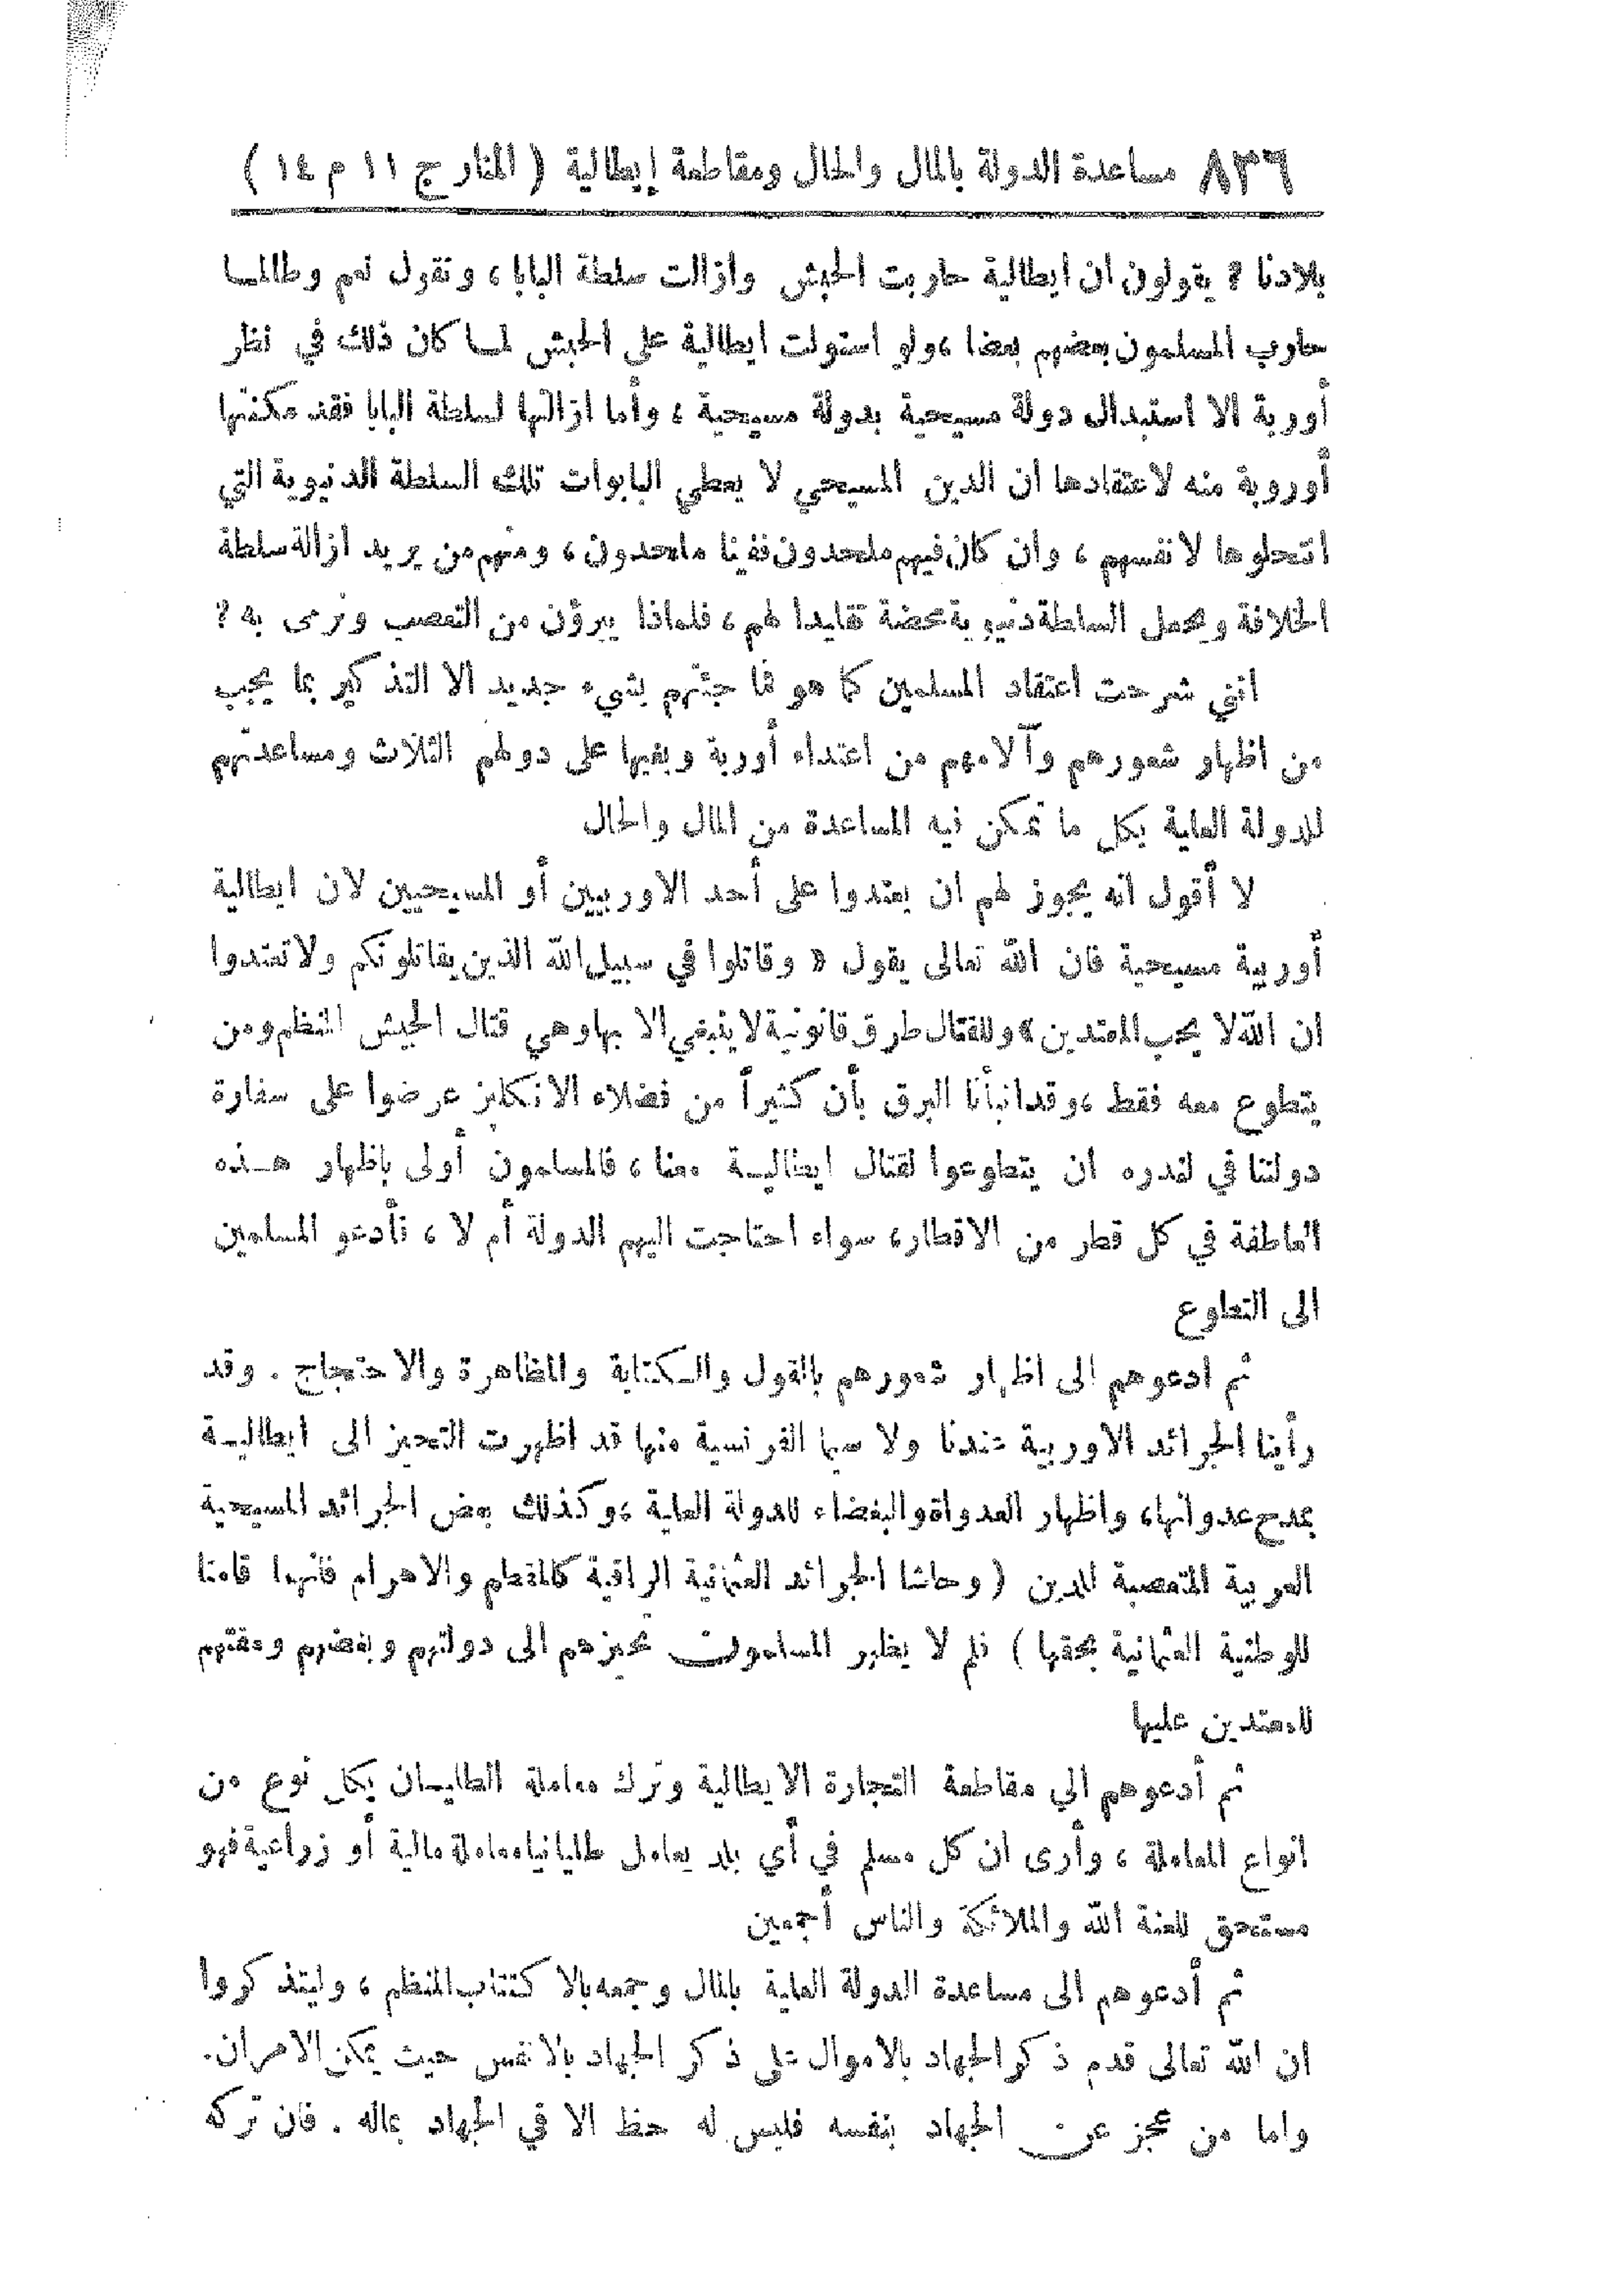 ٨٣٦ مساعدة الدولة بالمال والحال ومقاطعة إيطالية ( المنار ج ١١ م ١٤ )
بلادنا ؟ يقولون ان ايطالية حاربت الحبش وازالت سلطة البابا ، ونقول نعم وطالمـا
حارب المسلمون بعضهم بعضا ، ولو استولت ايطالية على الحبش لمـا كان ذلك في نظر
أوربة الا استبدال دولة مسيحية بدولة مسيحية ، وأما ازالتها لسلطة البابا فقد مكنتها
أوروبة منه لاعتقادها ان الدين المسيحي لا يعطي البابوات تلك السلطة الدنيوية التي
انتحلوها لانفسهم ، وان كان فيهم ملحدون ففينا ملحدون ، ومنهم من يريد ازالة سلطة
الخلافة ويجعل السلطة دنيوية محضة تقليدا لهم ، فلماذا يبرؤن من التعصب ونرمى به ؟
انني شرحت اعتقاد المسلمين كما هو فما جئتهم بشيء جديد الا التذكير بما يجب
من اظهار شعورهم وآلامهم من اعتداء أوربة وبغيها على دولهم الثلاث ومساعدتهم
للدولة العلية بكل ما تمكن فيه المساعدة من المال والحال
لا أقول انه يجوز لهم ان يعتدوا على أحد الاوربيين أو المسيحيين لان ايطالية
أوربية مسيحية فان الله تعالى يقول « وقاتلوا في سبيل الله الذين يقاتلونكم ولا تعتدوا
ان الله لا يحب المعتدين » وللقتال طرق قانونية لا ينبغي الا بها وهي قتال الجيش المنظم ومن
يتطوع معه فقط ، وقد انبأنا البرق بأن كثيراً من فضلاء الانكليز عرضوا على سفارة
دولتنا في لندره ان يتطوعوا لقتال ايطاليـة معنا ، فالمسلمون أولى باظهار هـذه
العاطفة في كل قطر من الاقطار، سواء احتاجت اليهم الدولة أم لا ، فأدعو المسلمين
الى التطوع
ثم ادعوهم الى اظهار شعورهم بالقول والـكتابة والمظاهرة والاحتجاج . وقد
رأينا الجرائد الاوربية عندنا ولا سيما الفرنسية منها قد اظهرت التحيز الى ايطاليـة
بمدح عدوانها، واظهار العدواة والبغضاء للدولة العلية ، وكذلك بعض الجرائد المسيحية
العربية المتعصبة للدين ( وحاشا الجرائد العثمانية الراقية كالمقطم والاهرام فانهما قامتا
للوطنية العثمانية بحقها ) فلم لا يظهر المسلمون تحيزهم الى دولتهم وبغضهم ومقتهم
للمعتدين عليها
ثم أدعوهم الي مقاطعة التجارة الايطالية وترك معاملة الطليـان بكل نوع من
انواع المعاملة ، وأرى ان كل مسلم في أي بلد يعامل طليانيا معاملة مالية أو زراعية فهو
مستحق للعنة الله والملائكة والناس أجمعين
ثم أدعوهم الى مساعدة الدولة العلية بالمال وجمعه بالاكتتاب المنظم ، وليتذكروا
ان الله تعالى قدم ذكر الجهاد بالاموال على ذكر الجهاد بالانفس حيث يمكن الامران.
واما من عجز عن الجهاد بنفسه فليس له حظ الا في الجهاد بماله . فان تركه